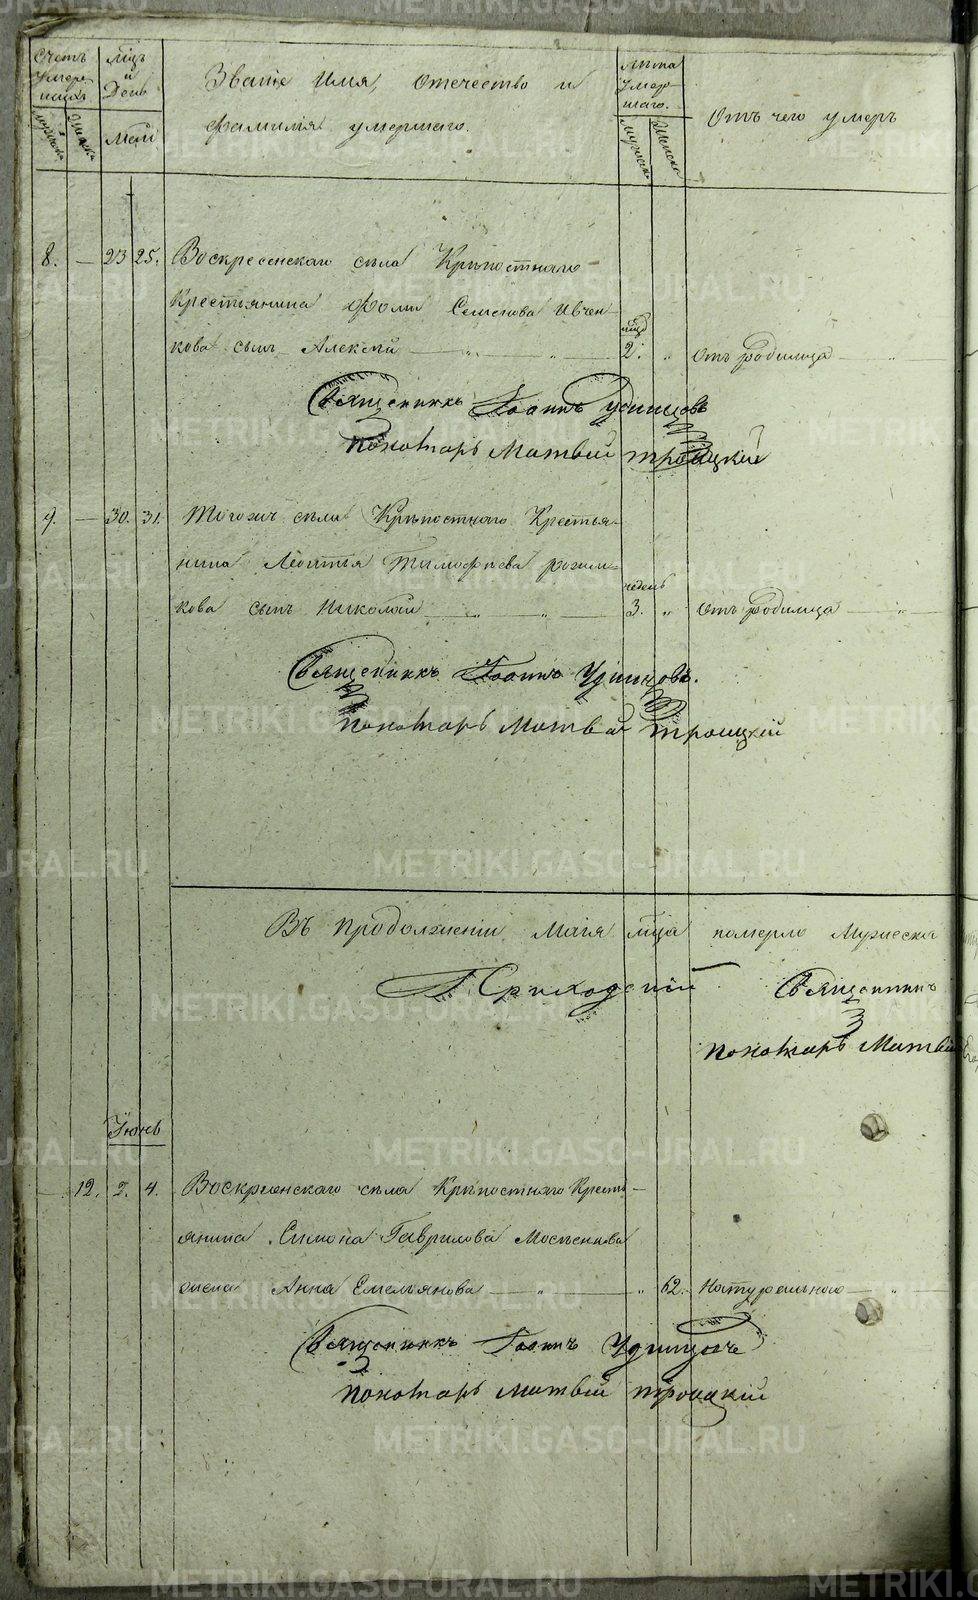 Счетъ умершихъ
Мужеска
Женска
Мцъ и День
Май
Званiе Имя, Отечество и
фамилiя умершаго.
Лета умершаго.
Мужеска
Женска
Отъ чего умеръ
8. — 23 25. Воскресенскаго села Крепостнаго
Крестьянина Фомы Семенова Ивчен-
мцъ
кова сынъ Алексей — „ — „ — 2. „ отъ родимца —
Священникъ Iоаннъ Удинцовъ
Пономарь Матвiй Троицкiй
9. — 30. 31. Тогожъ села Крепостнаго Крестья-
нина Леонтья Тимофеева
недель
кова сынъ Николай — „ — „ — 3. „ отъ родимца — „ —
Священникъ Iоаннъ Удинцовъ.
Пономарь Матвiй Троицкiй
Въ продолженiи Маiя мца померло Мужеска
Священникъ
Пономарь Матвiй
Iюнь
— 12. 2. 4. Воскресенскаго села Крепостнаго Кресть-
янина Симона Гаврилова
жена Анна Емельянова — „ — „ 62. Натуральною — „ —
Священникъ Iоаннъ Удинцовъ
Пономарь Матвiй Троицкiй
METRIKI.GASO-URAL.RU